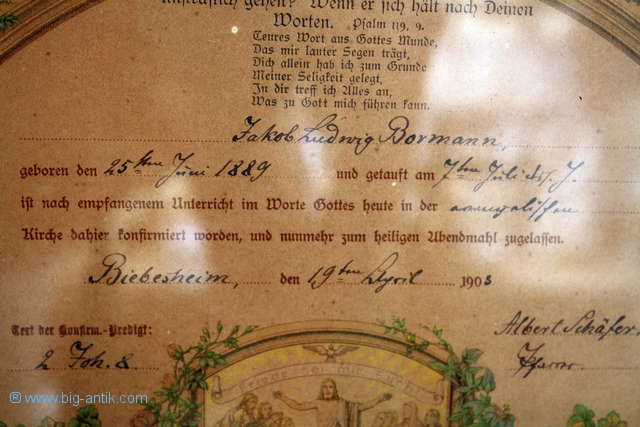 unsträflich gehen? Wenn er sich hält nach Deinen
Worten. Psalm 119. 9.
Teures Wort aus Gottes Munde,
Das mir lauter Segen trägt,
Dich allein hab ich zum Grunde
Meiner Seligkeit gelegt,
In dir treff ich Alles an,
Was zu Gott mich führen kann.
Jakob Ludwig Bormann,
geboren den 25ten Juni 1889 und getauft am 7ten Juli ds. J.
ist nach empfangenem Unterricht im Worte Gottes heute in der evangelischen
Kirche dahier konfirmiert worden, und nunmehr zum heiligen Abendmahl zugelassen.
Biebesheim, den 19ten April 1903
Text der Konfirm.-Predigt:
2 Joh. 8.
Albert Schäfer,
Pfarrer.
Friede sei mit Euch
® www.big-antik.com